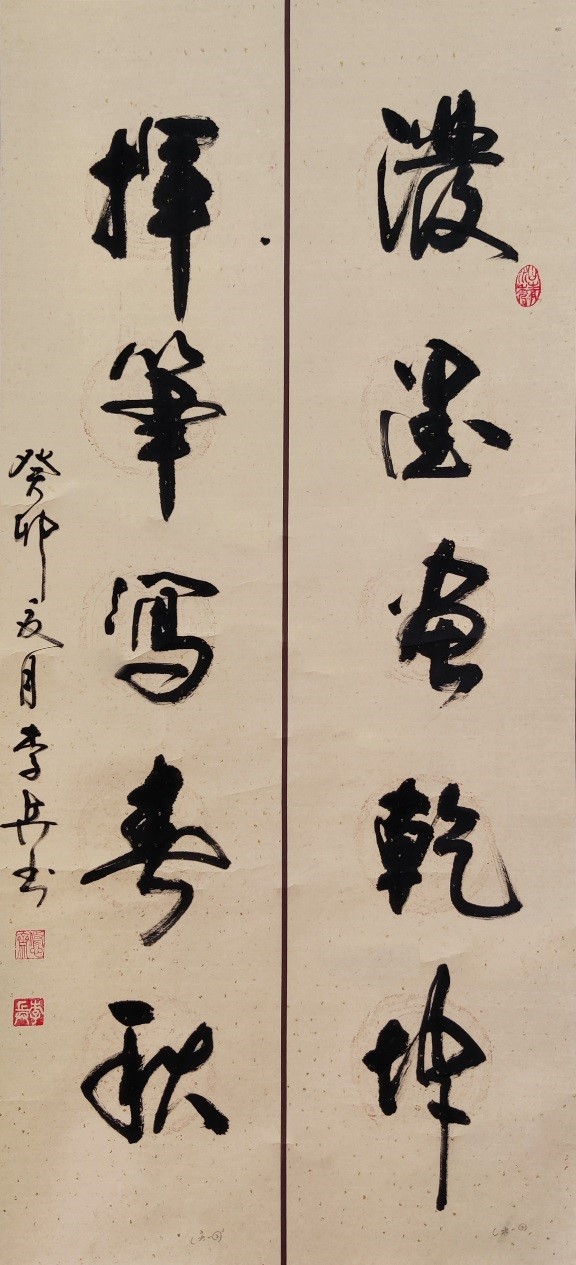 潑墨畫乾坤
揮筆寫春秋
癸卯夏月李兵书